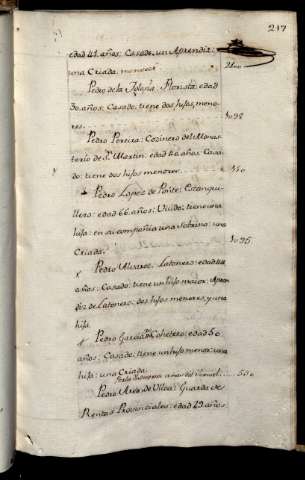 217
edad 41. años: Casado: un Aprendiz:
una Criada menor
2200
Pedro de la Iglesia: Florista: edad
30. años: Casado: tiene dos hijos, meno-
res.
Pedro Pereira: Cozinero del Monas-
terio de Sn. Martin: edad 46. años: Casa-
do: tiene dos hijos menores.
550
Pedro Lopez de Ponte: Estanqui-
llero: edad 66. años: Viudo: tiene una
hija: en su compañia una Sobrina: una
Criada.
Pedro Alvarez: Latonero: edad
años: Casado: tiene un hijo maior: Apren-
diz de Latonero: dos hijos menores, y una
hija.
Pedro Garcia: Cohetero: edad 50
años: Casado: tiene un hijo menor: una
hija: una Criada
550
Pedro de Ulloa: Guarda de
Rentas Provinciales: edad 29. años: